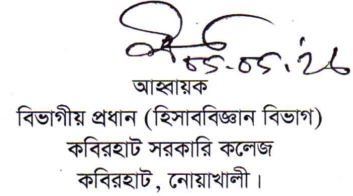 ০৫.০৫.'২৬
আহ্বায়ক
বিভাগীয় প্রধান (হিসাববিজ্ঞান বিভাগ)
কবিরহাট সরকারি কলেজ
কবিরহাট, নোয়াখালী।